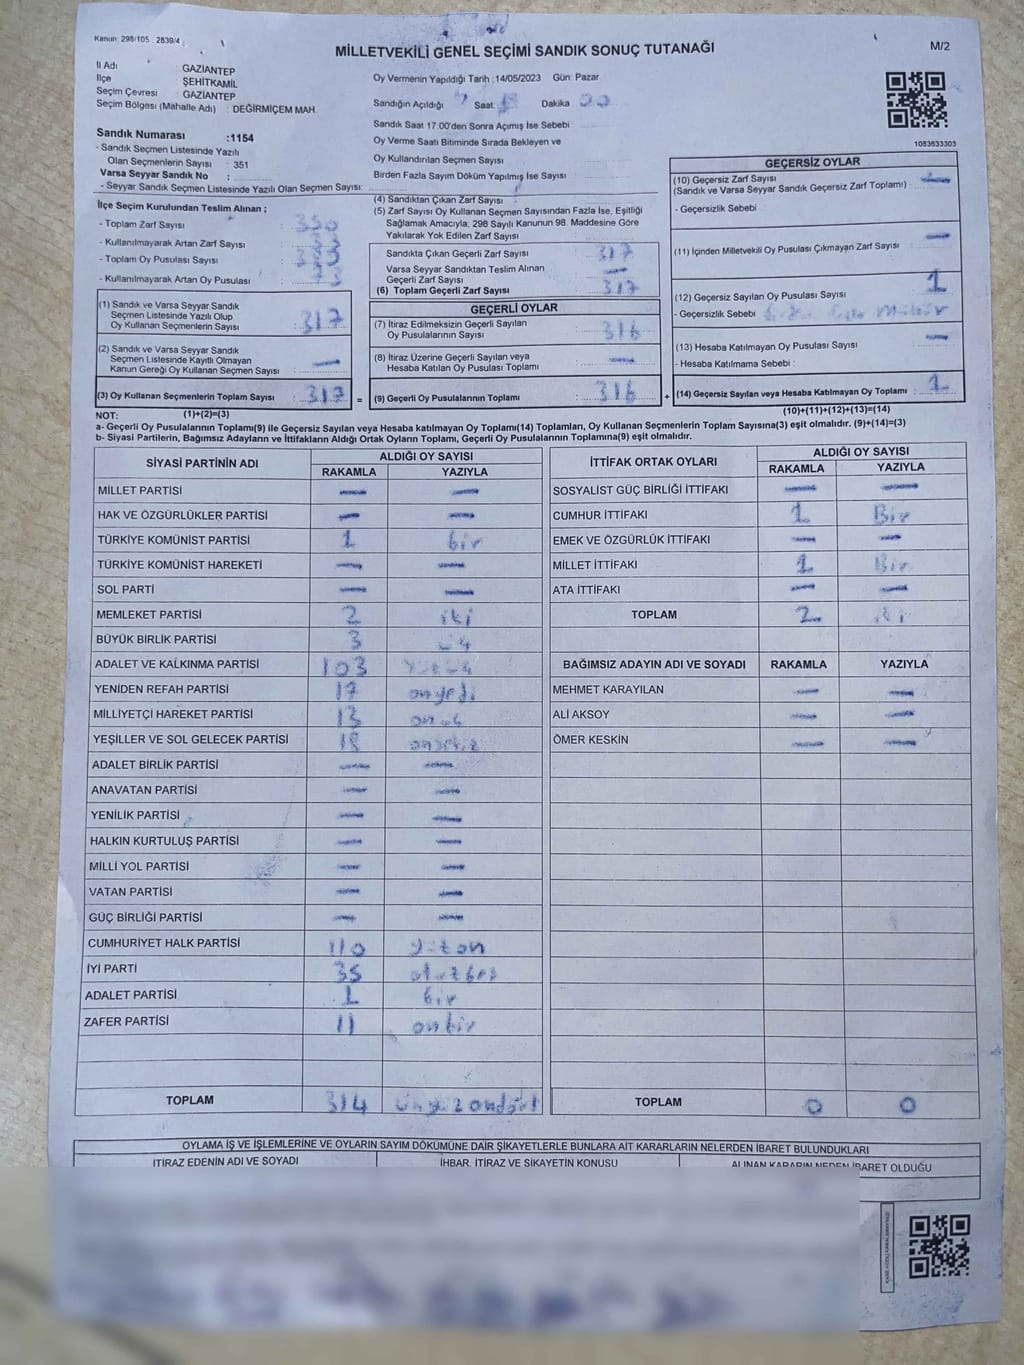 Kanun 298/105 : 2839/4 ;
MİLLETVEKİLİ GENEL SEÇİMİ SANDIK SONUÇ TUTANAĞI
M/2
İl Adı : GAZİANTEP
İlçe ŞEHİTKAMİL
Seçim Çevresi : GAZİANTEP
Seçim Bölgesi (Mahalle Adı) : DEĞİRMİÇEM MAH.
Oy Vermenin Yapıldığı Tarih :14/05/2023 Gün: Pazar
Sandığın Açıldığı Saat Dakika 00
Sandık Saat 17:00'den Sonra Açımış İse Sebebi
Oy Verme Saati Bitiminde Sırada Bekleyen ve
Oy Kullandırılan Seçmen Sayısı
Birden Fazla Sayım Döküm Yapılmış İse Sayısı
1083633303
Sandık Numarası :1154
- Sandık Seçmen Listesinde Yazılı
Olan Seçmenlerin Sayısı : 351
Varsa Seyyar Sandık No :
- Seyyar Sandık Seçmen Listesinde Yazılı Olan Seçmen Sayısı:
İlçe Seçim Kurulundan Teslim Alınan ;
- Toplam Zarf Sayısı : 350
- Kullanılmayarak Artan Zarf Sayısı :
- Toplam Oy Pusulası Sayısı :
- Kullanılmayarak Artan Oy Pusulası :
(1) Sandık ve Varsa Seyyar Sandık
Seçmen Listesinde Yazılı Olup
Oy Kullanan Seçmenlerin Sayısı : 317
(2) Sandık ve Varsa Seyyar Sandık
Seçmen Listesinde Kayıtlı Olmayan
Kanun Gereği Oy Kullanan Seçmen Sayısı : —
(3) Oy Kullanan Seçmenlerin Toplam Sayısı : 317
(4) Sandıktan Çıkan Zarf Sayısı
(5) Zarf Sayısı Oy Kullanan Seçmen Sayısından Fazla İse, Eşitliği
Sağlamak Amacıyla, 298 Sayılı Kanunun 98. Maddesine Göre
Yakılarak Yok Edilen Zarf Sayısı
Sandıkta Çıkan Geçerli Zarf Sayısı : 317
Varsa Seyyar Sandıktan Teslim Alınan
Geçerli Zarf Sayısı : —
(6) Toplam Geçerli Zarf Sayısı : 317
GEÇERLİ OYLAR
(7) İtiraz Edilmeksizin Geçerli Sayılan
Oy Pusulalarının Sayısı : 316
(8) İtiraz Üzerine Geçerli Sayılan veya
Hesaba Katılan Oy Pusulası Toplamı : —
= (9) Geçerli Oy Pusulalarının Toplamı : 316 +
GEÇERSİZ OYLAR
(10) Geçersiz Zarf Sayısı
(Sandık ve Varsa Seyyar Sandık Geçersiz Zarf Toplamı) : —
- Geçersizlik Sebebi
(11) İçinden Milletvekili Oy Pusulası Çıkmayan Zarf Sayısı : —
(12) Geçersiz Sayılan Oy Pusulası Sayısı : 1
- Geçersizlik Sebebi
(13) Hesaba Katılmayan Oy Pusulası Sayısı : —
- Hesaba Katılmama Sebebi :
(14) Geçersiz Sayılan veya Hesaba Katılmayan Oy Toplamı : 1
NOT: (1)+(2)=(3)
(10)+(11)+(12)+(13)=(14)
a- Geçerli Oy Pusulalarının Toplamı(9) ile Geçersiz Sayılan veya Hesaba katılmayan Oy Toplamı(14) Toplamları, Oy Kullanan Seçmenlerin Toplam Sayısına(3) eşit olmalıdır. (9)+(14)=(3)
b- Siyasi Partilerin, Bağımsız Adayların ve İttifakların Aldığı Ortak Oyların Toplamı, Geçerli Oy Pusulalarının Toplamına(9) eşit olmalıdır.
SİYASİ PARTİNİN ADI ALDIĞI OY SAYISI
RAKAMLA YAZIYLA
MİLLET PARTİSİ — —
HAK VE ÖZGÜRLÜKLER PARTİSİ — —
TÜRKİYE KOMÜNİST PARTİSİ 1 bir
TÜRKİYE KOMÜNİST HAREKETİ — —
SOL PARTİ — —
MEMLEKET PARTİSİ 2 iki
BÜYÜK BİRLİK PARTİSİ 3
ADALET VE KALKINMA PARTİSİ 103
YENİDEN REFAH PARTİSİ 17 onyedi
MİLLİYETÇİ HAREKET PARTİSİ 13
YEŞİLLER VE SOL GELECEK PARTİSİ 18
ADALET BİRLİK PARTİSİ — —
ANAVATAN PARTİSİ — —
YENİLİK PARTİSİ — —
HALKIN KURTULUŞ PARTİSİ — —
MİLLİ YOL PARTİSİ — —
VATAN PARTİSİ — —
GÜÇ BİRLİĞİ PARTİSİ — —
CUMHURİYET HALK PARTİSİ 110 yüzon
İYİ PARTİ 35 otuzbeş
ADALET PARTİSİ 1 bir
ZAFER PARTİSİ 11 onbir
TOPLAM 314 üçyüzondört
İTTİFAK ORTAK OYLARI ALDIĞI OY SAYISI
RAKAMLA YAZIYLA
SOSYALİST GÜÇ BİRLİĞİ İTTİFAKI — —
CUMHUR İTTİFAKI 1 Bir
EMEK VE ÖZGÜRLÜK İTTİFAKI — —
MİLLET İTTİFAKI 1 Bir
ATA İTTİFAKI — —
TOPLAM 2 iki
BAĞIMSIZ ADAYIN ADI VE SOYADI RAKAMLA YAZIYLA
MEHMET KARAYILAN — —
ALİ AKSOY — —
ÖMER KESKİN — —
TOPLAM 0 0
OYLAMA İŞ VE İŞLEMLERİNE VE OYLARIN SAYIM DÖKÜMÜNE DAİR ŞİKAYETLERLE BUNLARA AİT KARARLARIN NELERDEN İBARET BULUNDUKLARI
İTİRAZ EDENİN ADI VE SOYADI İHBAR, İTİRAZ VE ŞİKAYETİN KONUSU ALINAN KARARIN NEDEN İBARET OLDUĞU